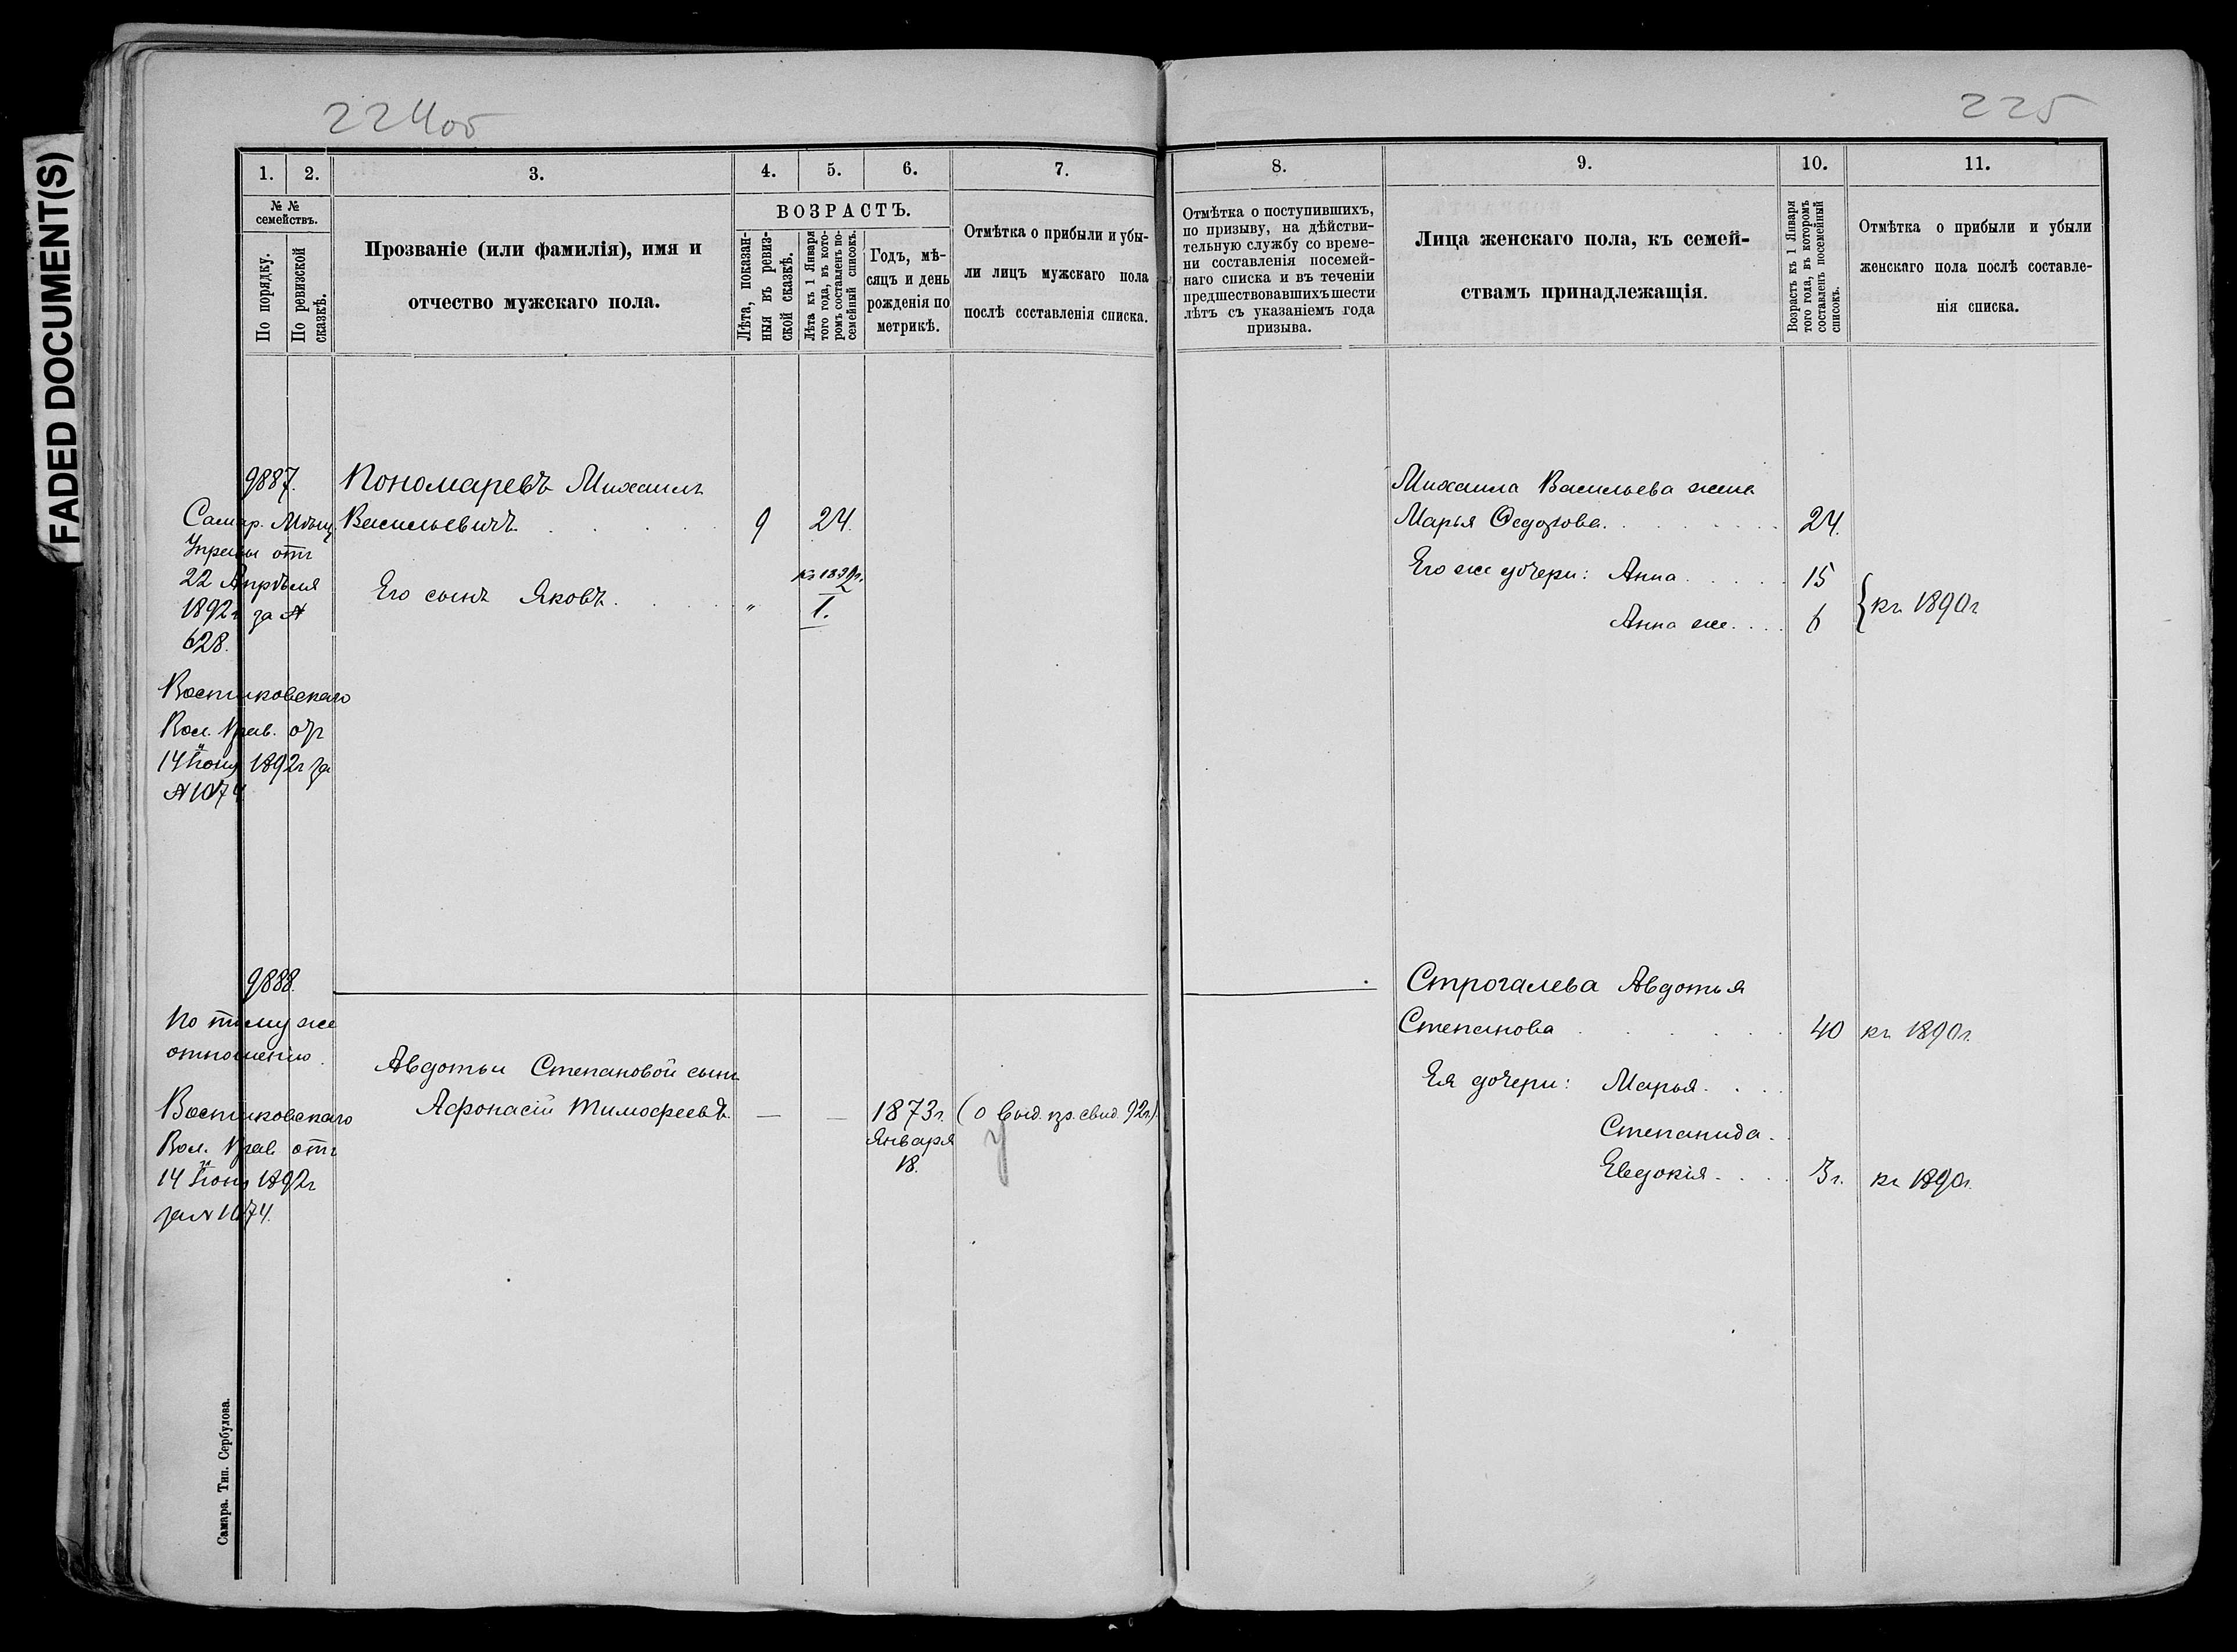 FADED DOCUMENT(S)
224об
1.
2.
3.
4.
5.
6.
7.
№ №
семействъ.
По порядку.
По ревизской
сказкѣ.
Прозваніе (или фамилія), имя и
отчество мужскаго пола.
ВОЗРАСТЪ.
Лѣта, показан-
ныя въ ревиз-
ской сказкѣ.
Лѣта къ 1 Января
того года, въ кото-
ромъ составленъ по-
семейный списокъ.
Годъ, мѣ-
сяцъ и день
рожденія по
метрикѣ.
Отмѣтка о прибыли и убы-
ли лицъ мужскаго пола
послѣ составленія списка.
9887.
Самар. Мѣщ.
Управы отъ
22 Апрѣля
1892г за №
628.
Вол. Прав. отъ
14 Іюня 1892г за
№ 1074
Пономаревъ Михаилъ
Васильевичъ
9
24.
Его сынъ Яковъ.
"
1.
9888.
По тому же
отношенію.
Вол. Прав. отъ
14 Іюня 1892г
за № 1074.
Авдотьи Степановой сынъ
Афонасій Тимофеевъ.
—
—
1873г.
Января
18.
(о выд. пр. свид. 92г.)
Самара. Тип. Сербулова.
225
8.
9.
10.
11.
Отмѣтка о поступившихъ,
по призыву, на дѣйстви-
тельную службу со време-
ни составленія посемей-
наго списка и въ теченіи
предшествовавшихъ шести
лѣтъ съ указаніемъ года
призыва.
Лица женскаго пола, къ семей-
ствамъ принадлежащія.
Возрастъ къ 1 Января
того года, въ которомъ
составленъ посемейный
списокъ.
Отмѣтка о прибыли и убыли
женскаго пола послѣ составле-
нія списка.
Михаила Васильева жена
Марья Федорова.
24.
Его же дочери: Анна
15
Анна же.
6
къ 1890г
Строгалева Авдотья
Степанова
40
къ 1890г.
Ея дочери: Марья.
Степанида.
Евдокія.
3г.
къ 1890г.